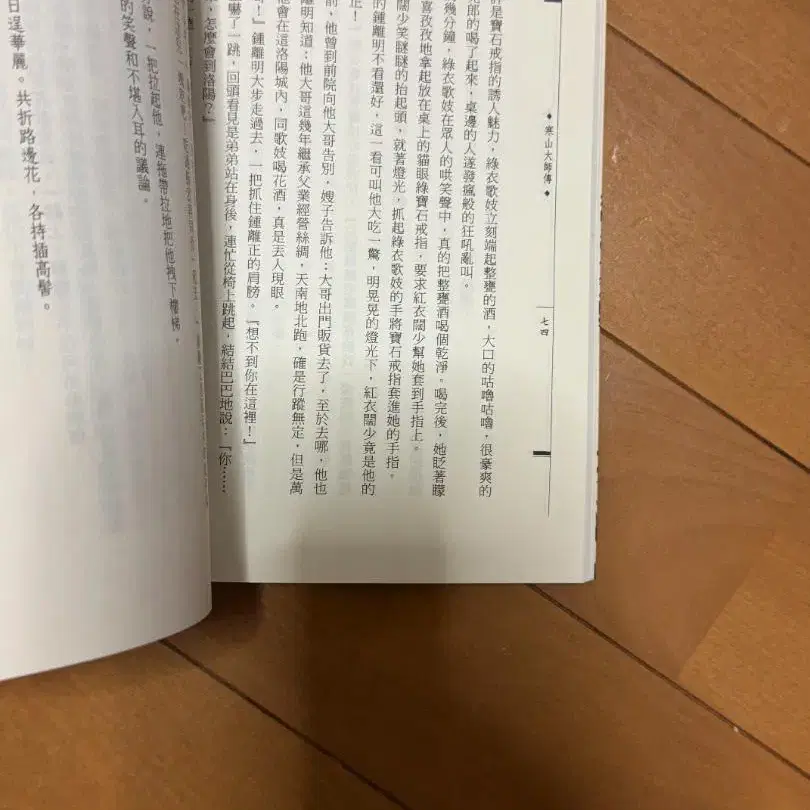 ◆寒山大師傳◆
七四
是寶石戒指的誘人魅力,綠衣歌妓立刻端起整甕的酒,大口的咕嚕咕嚕,很豪爽的
郎的喝了起來,桌邊的人遂發瘋般的狂吼亂叫。
幾分鐘,綠衣歌妓在眾人的哄笑聲中,真的把整甕酒喝個乾淨。喝完後,她眨著矇
喜孜孜地拿起放在桌上的貓眼綠寶石戒指,要求紅衣闊少幫她套到手指上。
闊少笑瞇瞇的抬起頭,就著燈光,抓起綠衣歌妓的手將寶石戒指套進她的手指。
的鍾離明不看還好,這一看可叫他大吃一驚,明晃晃的燈光下,紅衣闊少竟是他的
正!
前,他曾到前院向他大哥告別,嫂子告訴他:大哥出門販貨去了,至於去哪,他也
離明知道:他大哥這幾年繼承父業經營絲綢,天南地北跑,確是行蹤無定,但是萬
他會在這洛陽城內,同歌妓喝花酒,真是丟人現眼。
!」鍾離明大步走過去,一把抓住鍾離正的肩膀。『想不到你在這裡!』
嚇了一跳,回頭看見是弟弟站在身後,連忙從椅上跳起,結結巴巴地說:『你……
,怎麼會到洛陽?』
說,一把拉起他,連拖帶拉地把他拽下樓梯,
的笑聲和不堪入耳的議論。
日逞華麗。共折路邊花,各持插高髻。